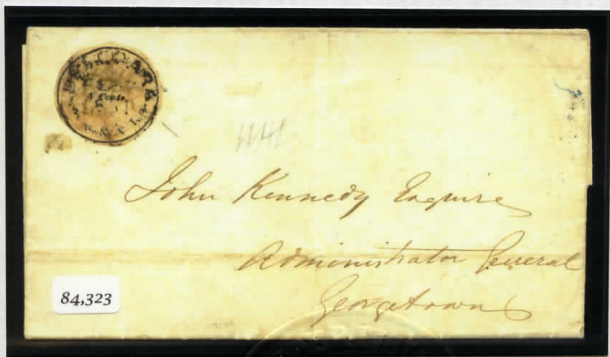 DEMERARA
1141
John Kennedy Esquire
Administrator General
Georgetown
84,323